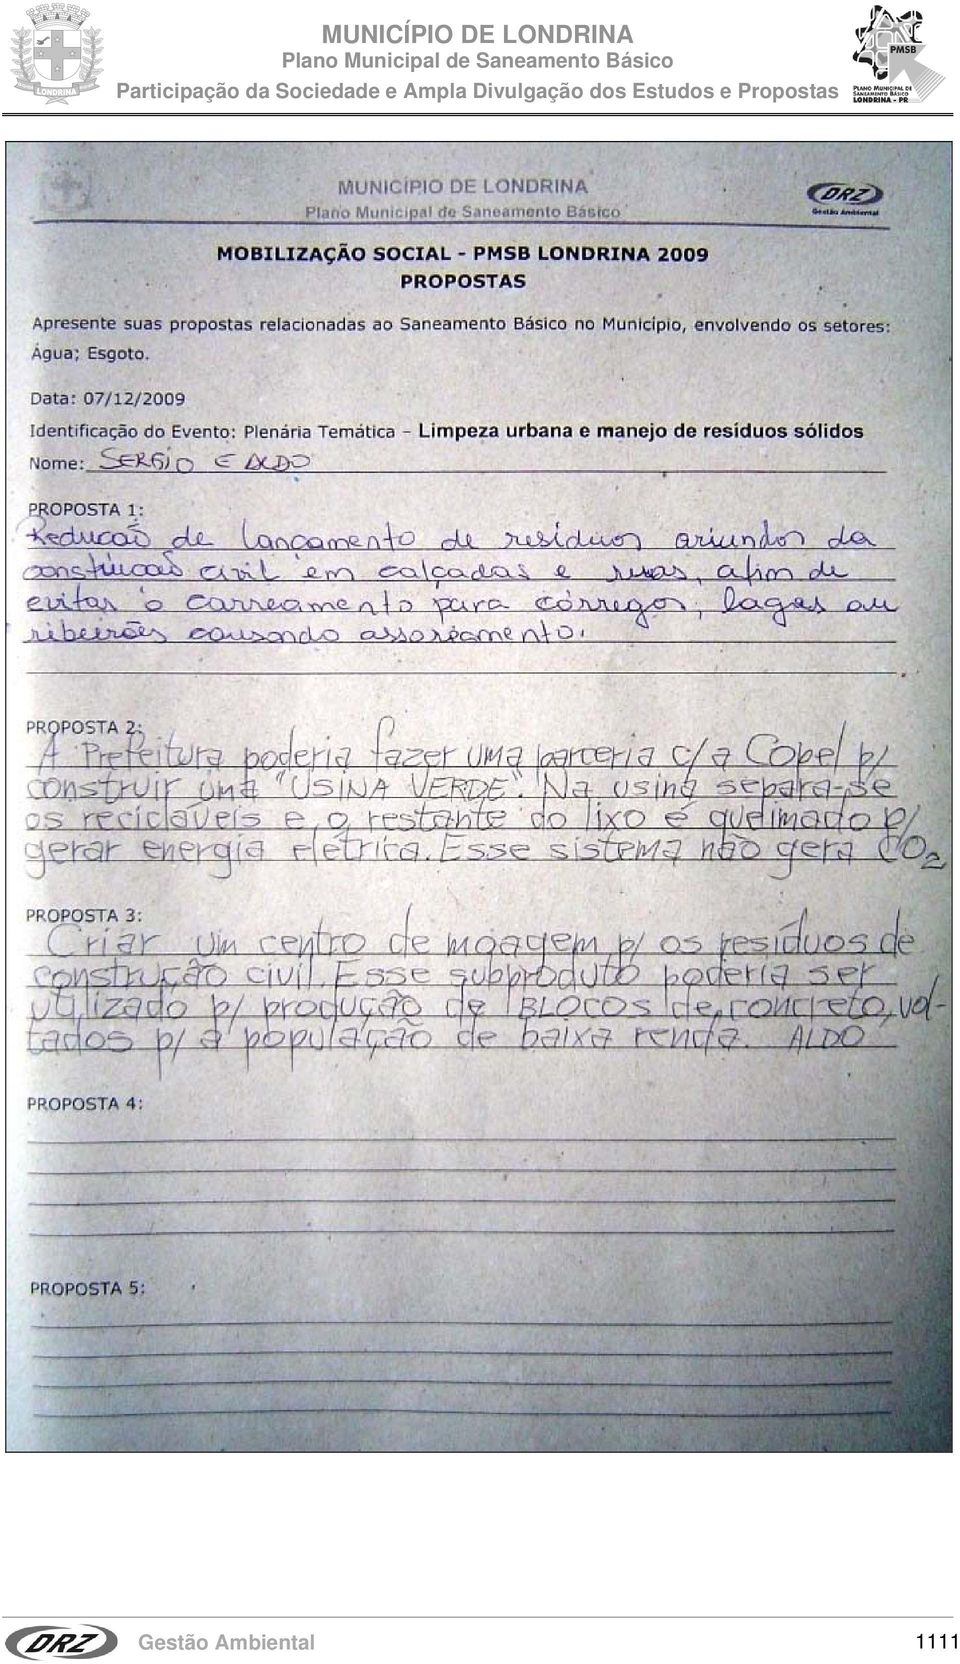 MUNICÍPIO DE LONDRINA
Plano Municipal de Saneamento Básico
Participação da Sociedade e Ampla Divulgação dos Estudos e Propostas
LONDRINA
PMSB
PLANO MUNICIPAL DE
SANEAMENTO BÁSICO
LONDRINA - PR
MUNICÍPIO DE LONDRINA
Plano Municipal de Saneamento Básico
DRZ
Gestão Ambiental
MOBILIZAÇÃO SOCIAL - PMSB LONDRINA 2009
PROPOSTAS
Apresente suas propostas relacionadas ao Saneamento Básico no Município, envolvendo os setores:
Água; Esgoto.
Data: 07/12/2009
Identificação do Evento: Plenária Temática – Limpeza urbana e manejo de resíduos sólidos
Nome: SERGIO E ALDO
PROPOSTA 1:
Reducaõ de lançamento de resíduos oriundos da
constuicaõ civil em calçadas e ruas, afim de
evitar o carreamento para córregos, lagos ou
ribeirões causando assoreamento.
PROPOSTA 2:
A Prefeitura poderia fazer uma parceria c/ a Copel p/
construir uma "USINA VERDE". Na usina separa-se
os recicláveis e o restante do lixo é queimado p/
gerar energia elétrica. Esse sistema não gera CO2
PROPOSTA 3:
Criar um centro de moagem p/ os resíduos de
construção civil. Esse subproduto poderia ser
utilizado p/ produção de BLOCOS de concreto, vol-
tados p/ a população de baixa renda. ALDO
PROPOSTA 4:
PROPOSTA 5:
DRZ Gestão Ambiental 1111